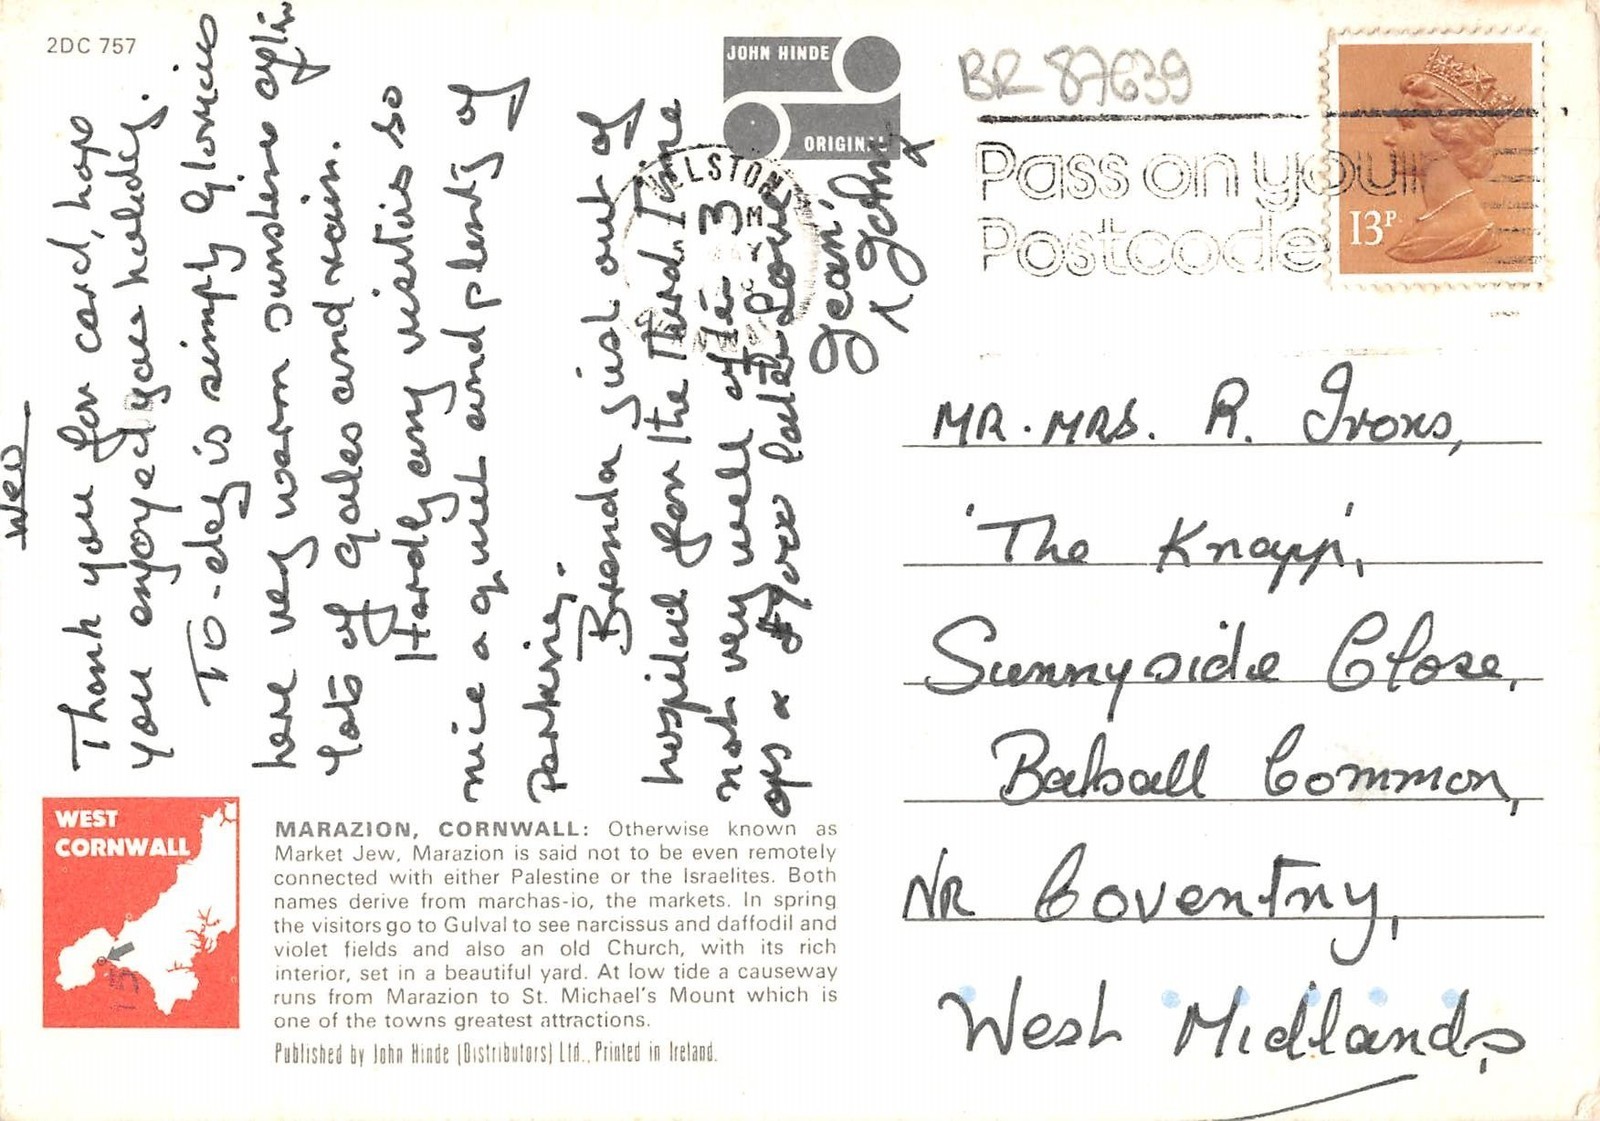 2DC 757
JOHN HINDE
ORIGINAL
BR 87639
Pass on your
Postcode
HELSTON
3
13P
Wed
Thank you for card, hope
you enjoyed your holiday.
To-day is simply glorious
here very warm sunshine after
lots of gales and rain.
Hardly any visitors so
nice & quiet and plenty of
parking.
Brenda just out of
hospital for the third time
not very well after
ops &
later Love
Jean,
x John x
MR. MRS. R. Irons,
'The Knapp',
Sunnyside Close,
Balsall Common,
NR Coventry,
West Midlands
WEST
CORNWALL
MARAZION, CORNWALL: Otherwise known as
Market Jew, Marazion is said not to be even remotely
connected with either Palestine or the Israelites. Both
names derive from marchas-io, the markets. In spring
the visitors go to Gulval to see narcissus and daffodil and
violet fields and also an old Church, with its rich
interior, set in a beautiful yard. At low tide a causeway
runs from Marazion to St. Michael's Mount which is
one of the towns greatest attractions.
Published by John Hinde (Distributors) Ltd., Printed in Ireland.